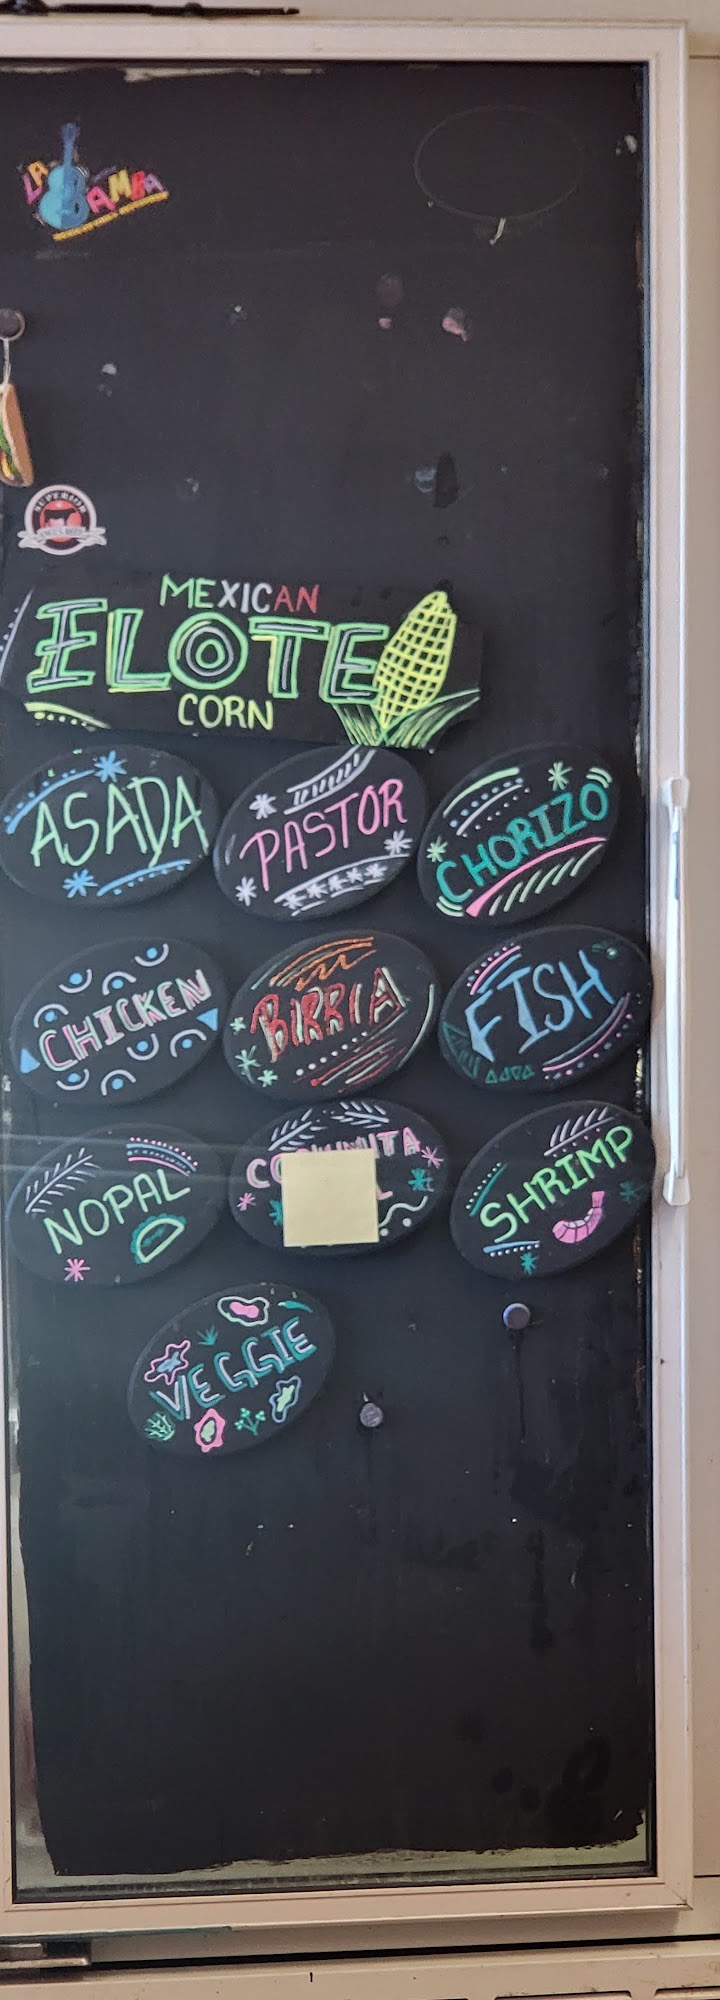 LA BAMBA
SUPERIOR
MEXICAN
ELOTE
CORN
ASADA
PASTOR
CHORIZO
CHICKEN
BIRRIA
FISH
NOPAL
SHRIMP
VEGGIE